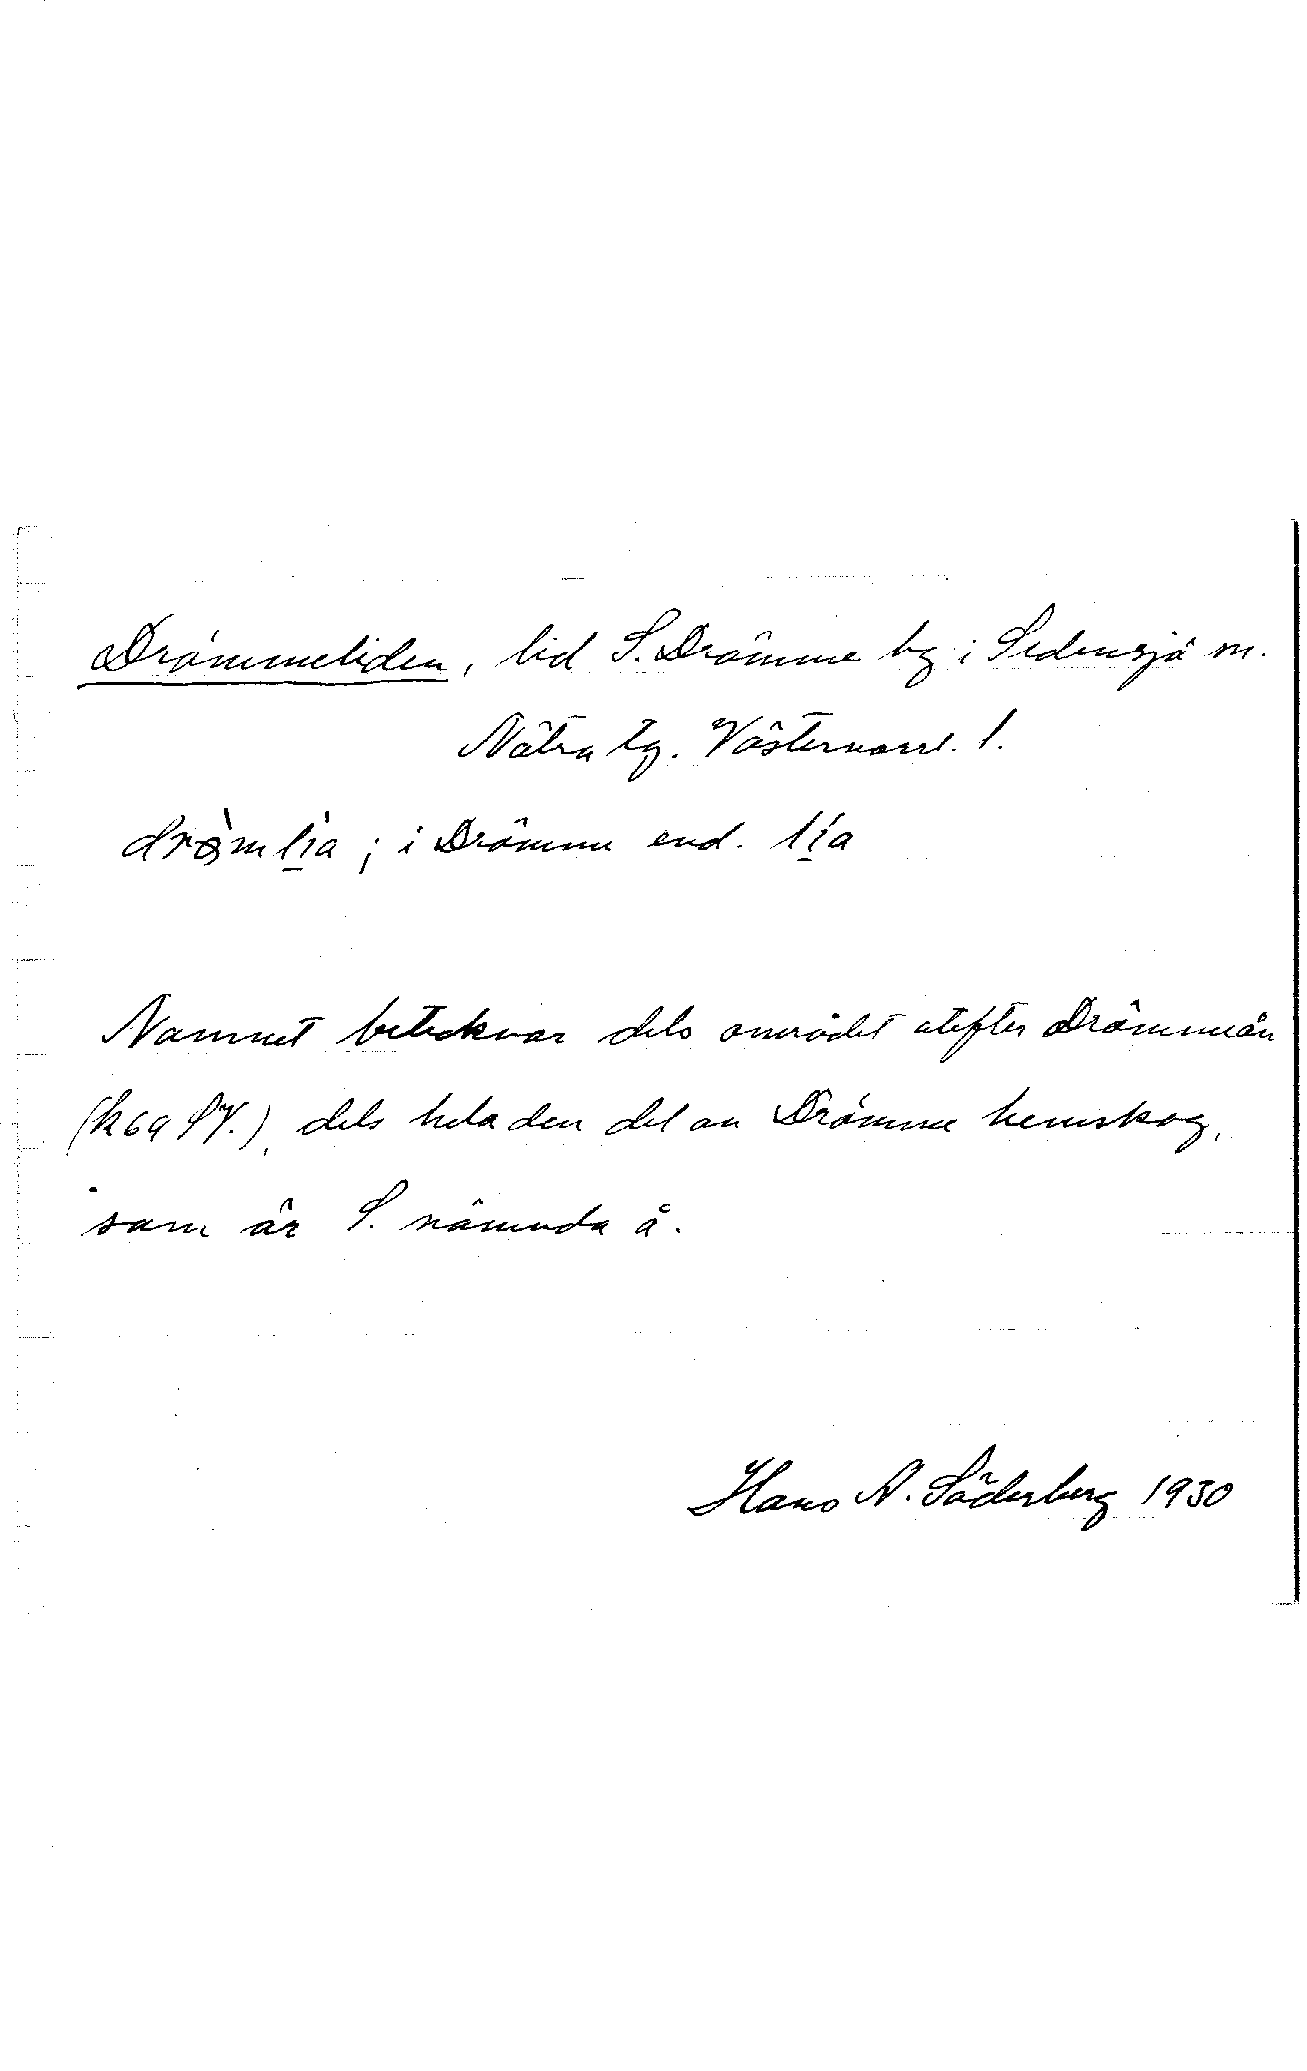 Drömmeliden, lid S. Drömme by i Sidensjö sn.
Nätra tg. Västernorrl. l.
drömlia ; i Drömme end. lia
Namnet betecknar dels området utefter Drömmeån
(k 69 SV.), dels hela den del av Drömme hemskog,
som är S. nämnda å.
Hans N. Söderberg 1930